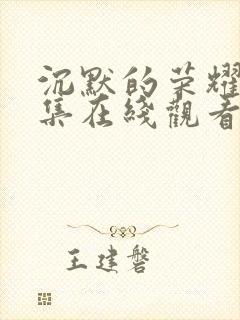 沉默的荣耀
集在綫觀看
王建磐